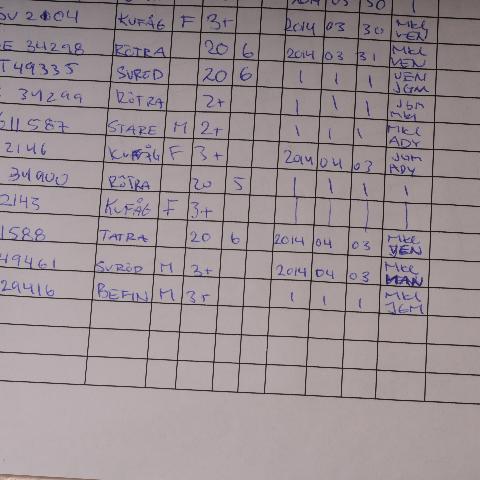 SV 2004 KUFÅG F 3+ 2014 03 30 MKL VEN
E 34298 RÖTRA 20 6 2014 03 31 MKL VEN
T49335 SVRÖD 20 6 | | | VEN JGM
34299 RÖTRA 2+ | | | JGM MKL
611587 STARE M 2+ | | | MKL ADY
2146 KUFÅG F 3+ 2014 04 03 JGM ADY
34900 RÖTRA 20 5 | | | |
2143 KUFÅG F 3+ | | | |
1588 TATRA 20 6 2014 04 03 MKL VEN
49461 SVRÖD M 3+ 2014 04 03 MKL MAN
29416 BEFIN M 3+ | | | MKL JGM